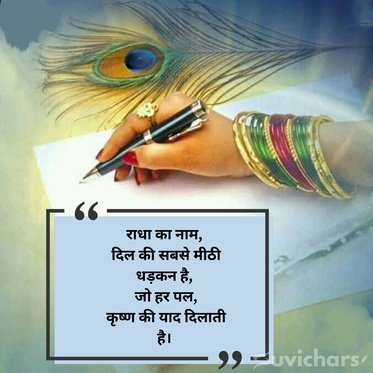 “
राधा का नाम,
दिल की सबसे मीठी
धड़कन है,
जो हर पल,
कृष्ण की याद दिलाती
है।
”
uvichars